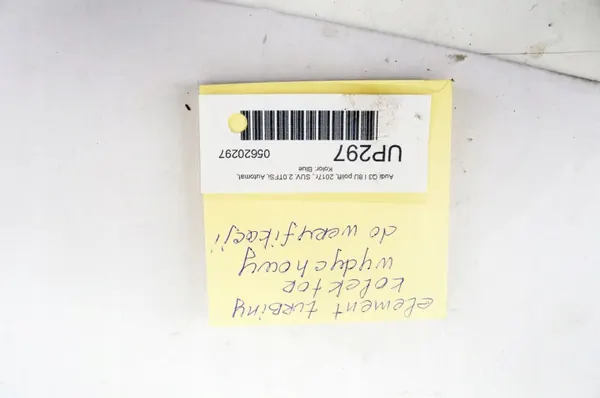 element turbiny
kolektor
wydychowy
do weryfikacji
Audi Q3 I 8U polift, 2017r., SUV, 2.0TFSi, Automat,
Kolor: Blue
UP297
05620297